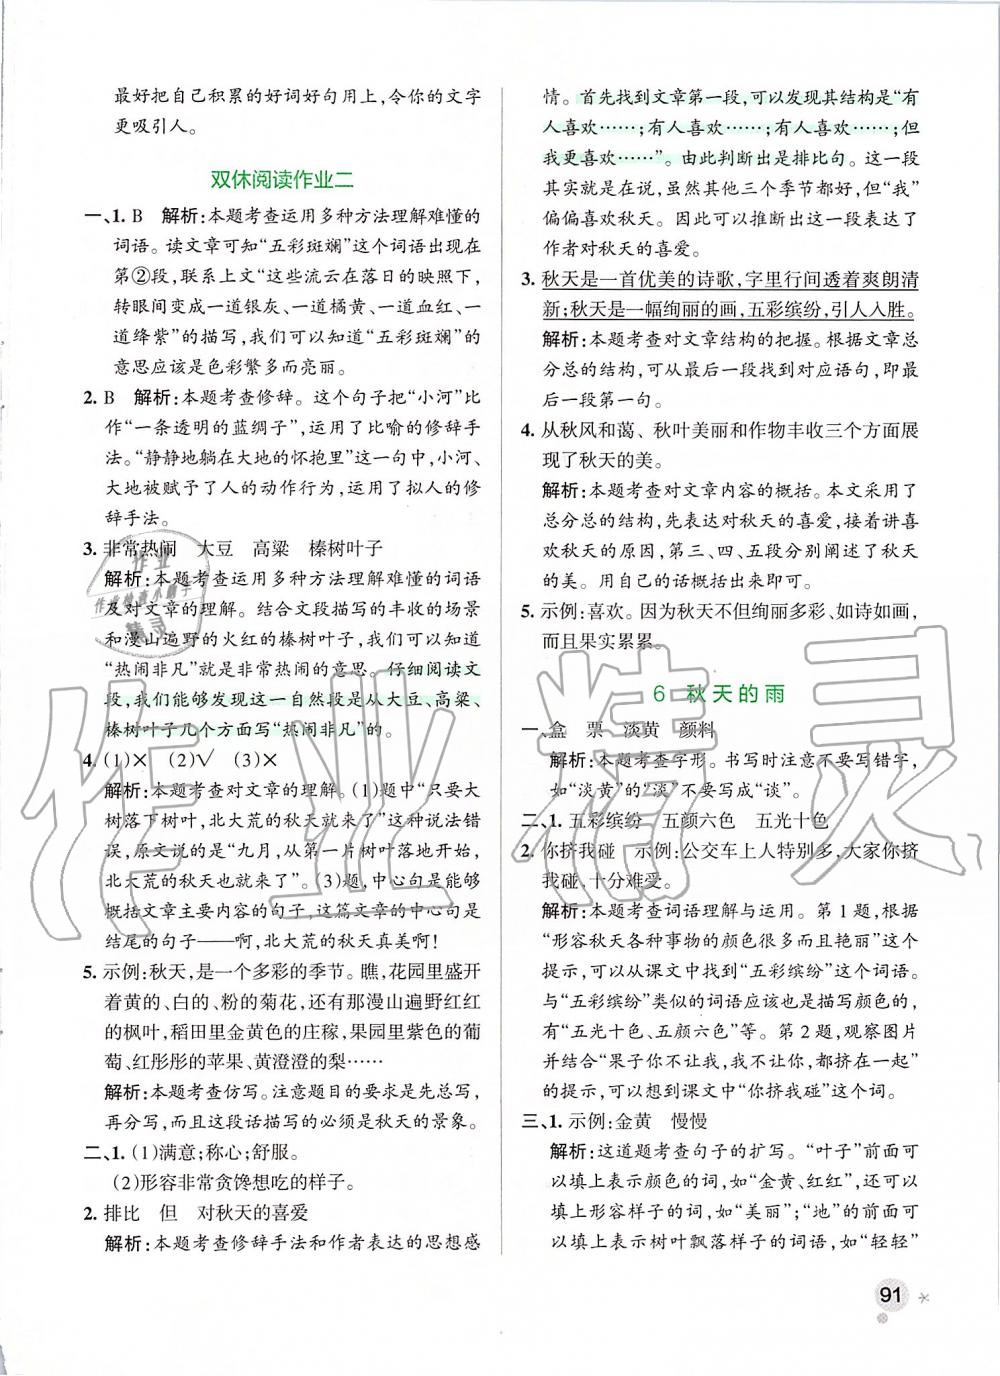 最好把自己积累的好词好句用上,令你的文字
更吸引人。
双休阅读作业二
一、1. B 解析:本题考查运用多种方法理解难懂的
词语。读文章可知“五彩斑斓”这个词语出现在
第②段,联系上文“这些流云在落日的映照下,
转眼间变成一道银灰、一道橘黄、一道血红、一
道绛紫”的描写,我们可以知道“五彩斑斓”的
意思应该是色彩繁多而亮丽。
2. B 解析:本题考查修辞。这个句子把“小河”比
作“一条透明的蓝绸子”,运用了比喻的修辞手
法。“静静地躺在大地的怀抱里”一句中,小河、
大地被赋予了人的动作行为,运用了拟人的修
辞手法。
3. 非常热闹 大豆 高粱 榛树叶子
解析:本题考查运用多种方法理解难懂的词语
及对文章的理解。结合文段描写的丰收的场景
和漫山遍野的火红的榛树叶子,我们可以知道
“热闹非凡”就是非常热闹的意思。仔细阅读文
段,我们能够发现这一自然段是从大豆、高粱、
榛树叶子几个方面写“热闹非凡”的。
4. (1)× (2)√ (3)×
解析:本题考查对文章的理解。(1)题中“只要大
树落下树叶,北大荒的秋天就来了”这种说法错
误,原文说的是“九月,从第一片树叶落地开始,
北大荒的秋天也就来了”。(3)题,中心句是能够
概括文章主要内容的句子,这篇文章的中心句是
结尾的句子——啊,北大荒的秋天真美啊!
5. 示例:秋天,是一个多彩的季节。瞧,花园里盛开
着黄的、白的、粉的菊花,还有那漫山遍野红红
的枫叶,稻田里金黄色的庄稼,果园里紫色的葡
萄、红彤彤的苹果、黄澄澄的梨……
解析:本题考查仿写。注意题目的要求是先总写,
再分写,而且这段话描写的必须是秋天的景象。
二、1. (1)满意;称心;舒服。
(2)形容非常贪馋想吃的样子。
2. 排比 但 对秋天的喜爱
解析:本题考查修辞手法和作者表达的思想感
情。首先找到文章第一段,可以发现其结构是“有
人喜欢……;有人喜欢……;有人喜欢……;但
我更喜欢……”。由此判断出是排比句。这一段
其实就是在说,虽然其他三个季节都好,但“我”
偏偏喜欢秋天。因此可以推断出这一段表达了
作者对秋天的喜爱。
3. 秋天是一首优美的诗歌,字里行间透着爽朗清
新;秋天是一幅绚丽的画,五彩缤纷,引人入胜。
解析:本题考查对文章结构的把握。根据文章总
分总的结构,可从最后一段找到对应语句,即最
后一段第一句。
4. 从秋风和蔼、秋叶美丽和作物丰收三个方面展
现了秋天的美。
解析:本题考查对文章内容的概括。本文采用了
总分总的结构,先表达对秋天的喜爱,接着讲喜
欢秋天的原因,第三、四、五段分别阐述了秋天
的美。用自己的话概括出来即可。
5. 示例:喜欢。因为秋天不但绚丽多彩、如诗如画,
而且果实累累。
6 秋天的雨
一、盒 票 淡黄 颜料
解析:本题考查字形。书写时注意不要写错字,
如“淡黄”的“淡”不要写成“谈”。
二、1. 五彩缤纷 五颜六色 五光十色
2. 你挤我碰 示例:公交车上人特别多,大家你挤
我碰,十分难受。
解析:本题考查词语理解与运用。第1题,根据
“形容秋天各种事物的颜色很多而且艳丽”这个
提示,可以从课文中找到“五彩缤纷”这个词语。
与“五彩缤纷”类似的词语应该也是描写颜色的,
有“五光十色、五颜六色”等。第2题,观察图片
并结合“果子你不让我,我不让你,都挤在一起”
的提示,可以想到课文中“你挤我碰”这个词。
三、1. 示例:金黄 慢慢
解析:这道题考查句子的扩写。“叶子”前面可
以填上表示颜色的词,如“金黄、红红”,还可以
填上形容样子的词,如“美丽”;“地”的前面可
以填上表示树叶飘落样子的词语,如“轻轻”
91
作业
作业检查小助手
精灵
作业精灵